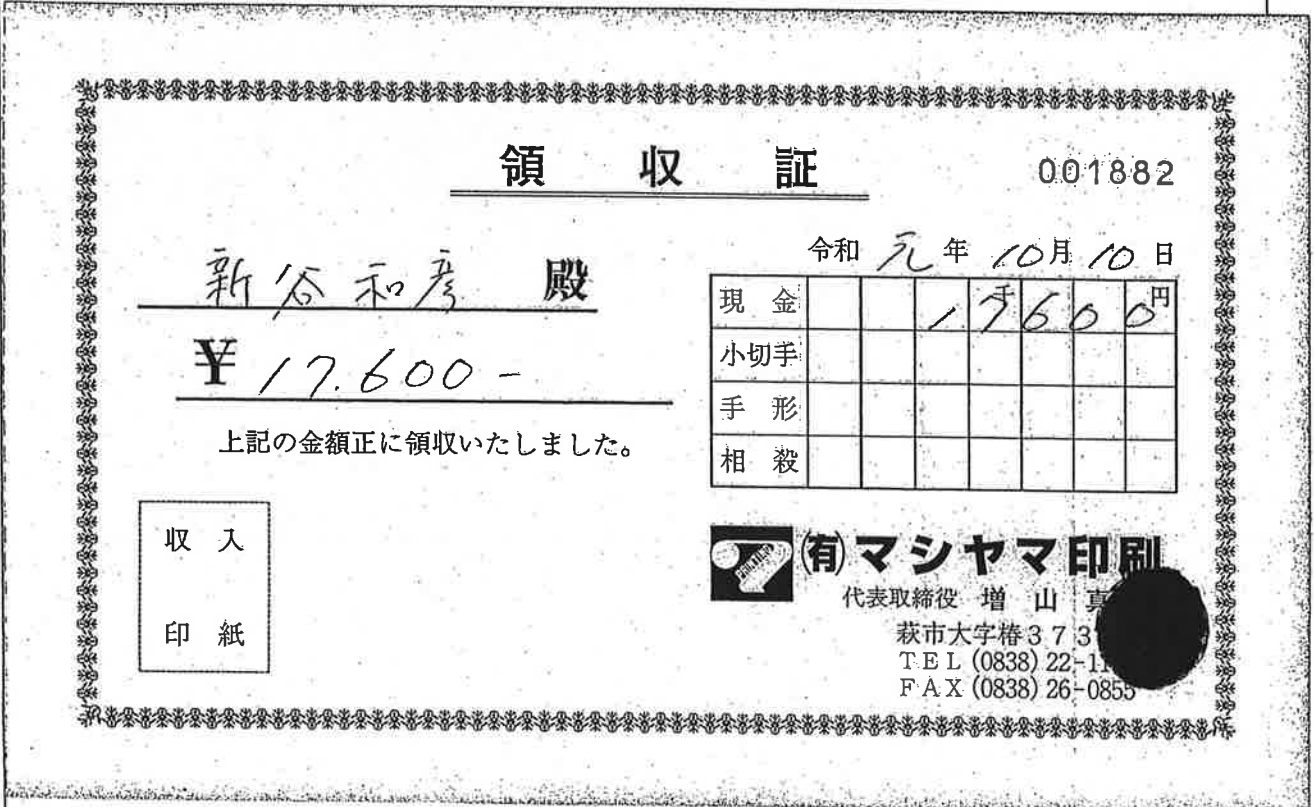 領収証
001882
令和 元年 10月 10日
新谷和彦 殿
¥17.600-
上記の金額正に領収いたしました。
現金 1 7 6 0 0
千 円
小切手
手形
相殺
収入
印紙
(有)マシヤマ印刷
代表取締役 増山真
萩市大字椿373
TEL (0838) 22-1
FAX (0838) 26-0855